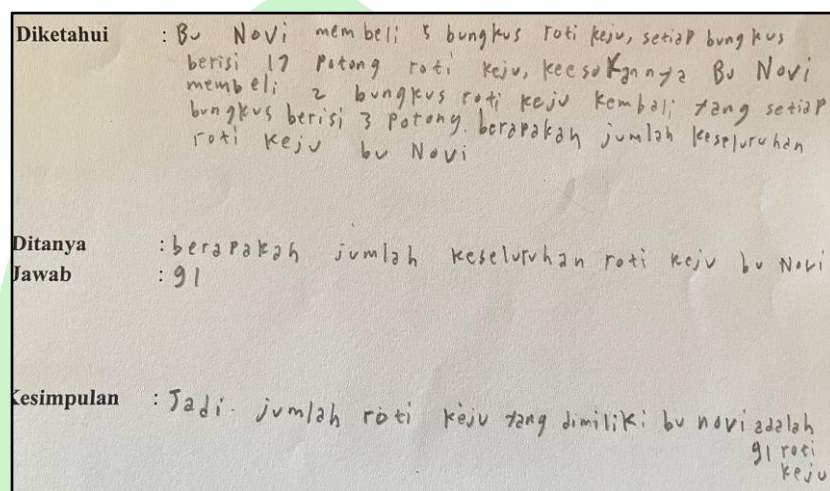 Diketahui : Bu Novi membeli 5 bungkus roti keju, setiap bungkus
berisi 17 potong roti keju, keesokannya Bu Novi
membeli 2 bungkus roti keju kembali yang setiap
bungkus berisi 3 potong. berapakah jumlah keseluruhan
roti keju bu Novi
Ditanya : berapakah jumlah keseluruhan roti keju bu Novi
Jawab : 91
Kesimpulan : Jadi. jumlah roti keju yang dimiliki bu novi adalah
91 roti
keju